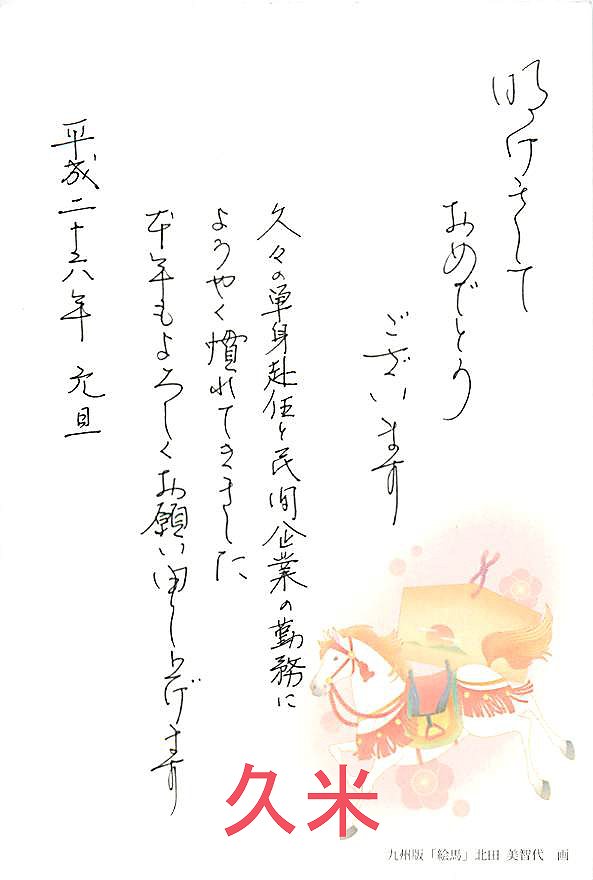 明けまして
おめでとう
ございます
久々の単身赴任と民間企業の勤務に
ようやく慣れてきました
本年もよろしくお願い申し上げます
平成二十六年 元旦
久米
九州版「絵馬」北田 美智代 画